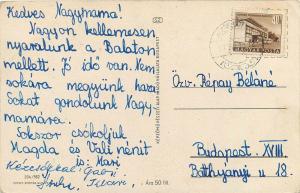 Kedves Nagymama!
Nagyon kellemesen
nyaralunk a Balaton
mellett. Jó idő van. Nem
sokára megyünk haza
Sokat gondolunk Nagy
mamára.
Sokszor csókoljuk
Magda és Vali nénit
is: Mari
Kézcsókkal: Gabi
Ára 50 fill.
MAGYAR POSTA
Özv. Répay Béláné
Budapest. XVIII
Batthyányi u. 18